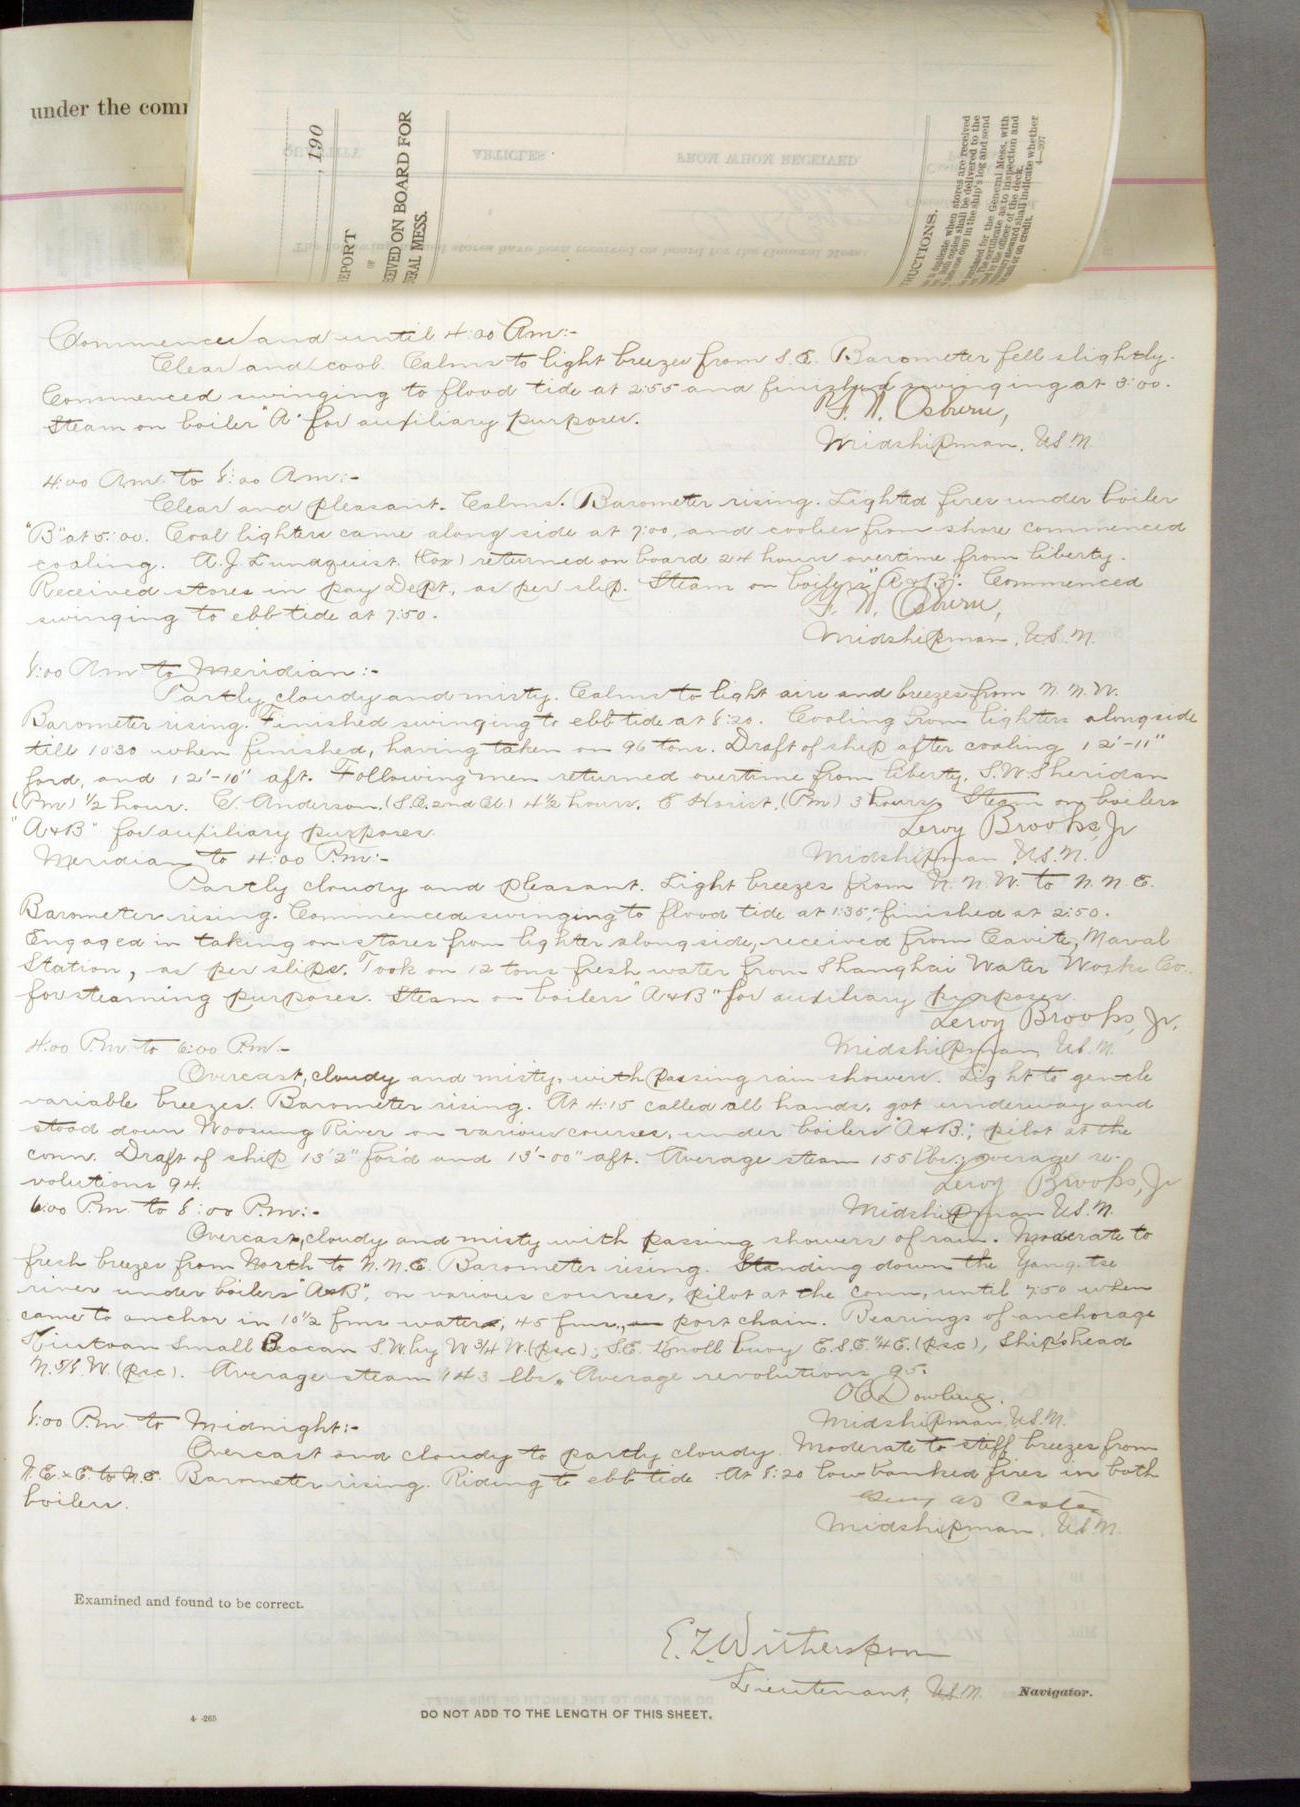 under the comm
, 190
REPORT
OF
CEIVED ON BOARD FOR
ERAL MESS.
QUANTITY
ARTICLES
FROM WHOM RECEIVED
RUCTIONS.
4—207
Commenced and until 4:00 Am:-
Clear and cool. Calms to light breezes from S.E. Barometer fell slightly.
Commenced swinging to flood tide at 2:55 and finished swinging at 3:00.
Steam on boiler "A" for auxiliary purposes.
F. N. Osburn,
Midshipman, U.S.N.
4:00 Am. to 8:00 Am:-
Clear and pleasant. Calms. Barometer rising. Lighted fires under boiler
"B" at 5:00. Coal lighters came along side at 7:00, and coolies from shore commenced
coaling. A. J. Lundquist (Cox) returned on board 24 hours overtime from liberty.
Received stores in pay Dept, as per slip. Steam on boilers "A & B". Commenced
swinging to ebb tide at 7:50.
F. N. Osburn,
Midshipman, U.S.N.
8:00 Am to Meridian:-
Partly cloudy and misty. Calms to light airs and breezes from N.N.W.
Barometer rising. Finished swinging to ebb tide at 8:20. Coaling from lighters alongside
till 10:30 when finished, having taken on 96 tons. Draft of ship after coaling 12'-11"
ford, and 12'-10" aft. Following men returned overtime from liberty. S.W. Sheridan
(Pm) ½ hour. C. Anderson, (S.E. 2nd Cl.) 4½ hours. E (Pm) 3 hours. Steam on boilers
"A & B" for auxiliary purposes.
Leroy Brooks, Jr
Midshipman U.S.N.
Meridian to 4:00 P.m:-
Partly cloudy and pleasant. Light breezes from N.N.W. to N.N.E.
Barometer rising. Commenced swinging to flood tide at 1:35; finished at 2:50.
Engaged in taking on stores from lighter alongside, received from Cavite, Naval
Station, as per slips. Took on 12 tons fresh water from Shanghai Water Works Co.
for steaming purposes. Steam on boilers "A & B" for auxiliary purposes.
Leroy Brooks, Jr.
Midshipman U.S.N.
4:00 P.m. to 6:00 P.m:-
Overcast, cloudy and misty, with passing rain showers. Light to gentle
variable breezes. Barometer rising. At 4:15 called all hands, got underway and
stood down Woosung River on various courses, under boilers "A & B"; pilot at the
conn. Draft of ship 13'2" for'd and 13'-00" aft. Average steam 155 lbs; average re-
volutions 94.
Leroy Brooks, Jr
Midshipman U.S.N.
6:00 P.m. to 8:00 P.m:-
Overcast, cloudy and misty with passing showers of rain. Moderate to
fresh breezes from North to N.N.E. Barometer rising. Standing down the Yang-tse
river under boilers "A & B", on various courses, pilot at the conn, until 7:50 when
came to anchor in 10½ fms water, 45 fms., port chain. Bearings of anchorage
Kiutoan Small Beacan S.W. by W ¾ W. (psc); S.E. Knoll buoy E.S.E. ¼ E. (psc), Ship's head
N. ⅝ W. (psc). Average steam 143 lbs. Average revolutions 95.
O C Dowling,
Midshipman, U.S.N.
8:00 P.m. to Midnight:-
Overcast and cloudy to partly cloudy. Moderate to stiff breezes from
N.E. x E. to N.E. Barometer rising. Riding to ebb tide. At 8:20 low banked fires in both
boilers.
Midshipman, U.S.N.
Examined and found to be correct.
E. Z. Witherspoon
Lieutenant, U.S.N. Navigator.
4-265
DO NOT ADD TO THE LENGTH OF THIS SHEET.